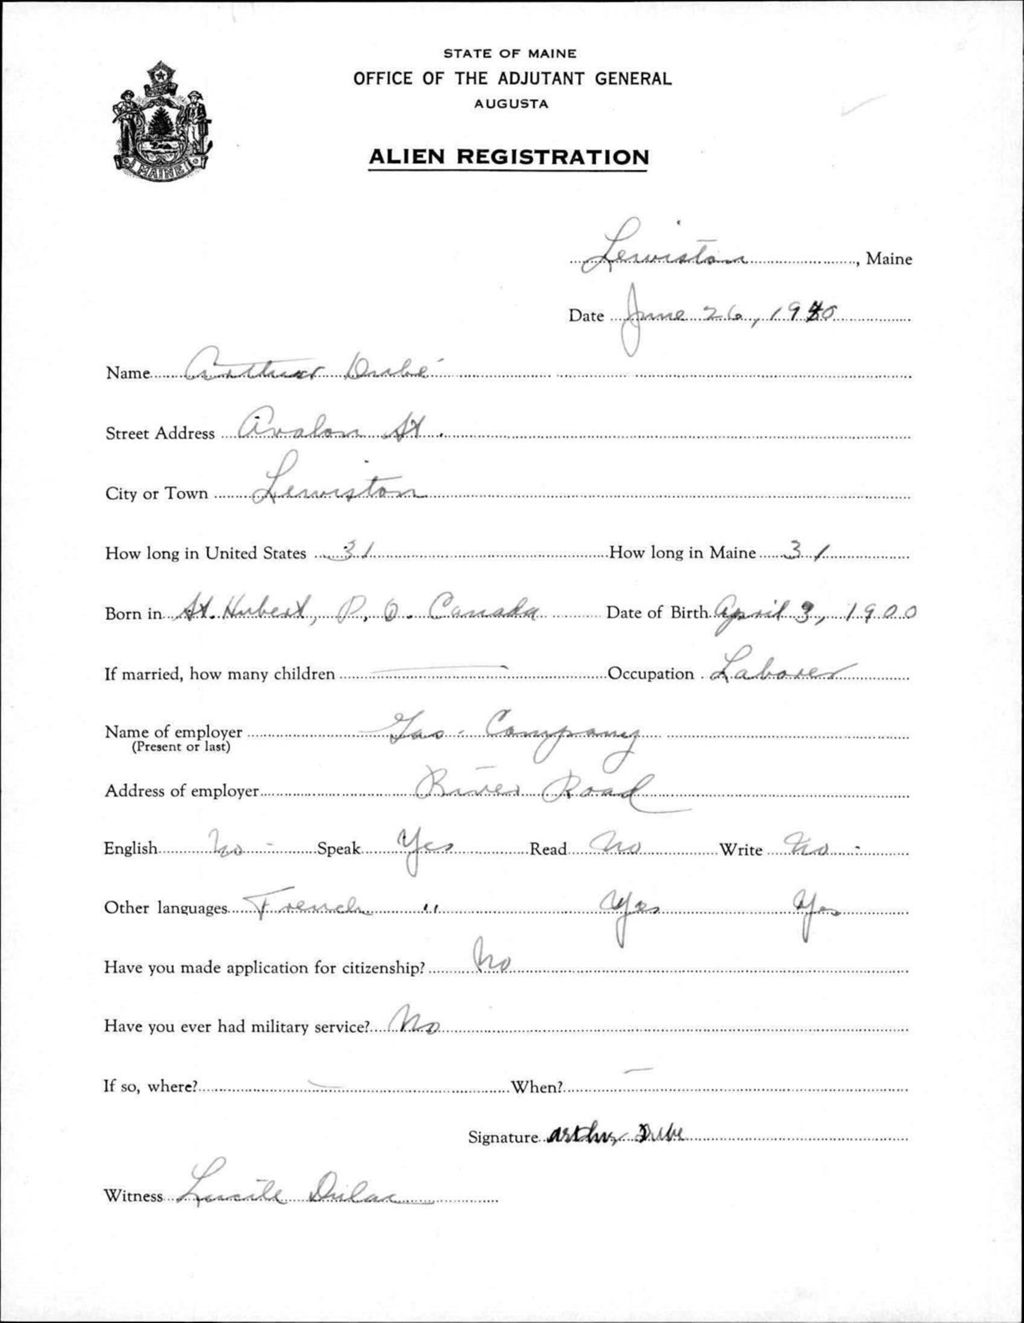 STATE OF MAINE
OFFICE OF THE ADJUTANT GENERAL
AUGUSTA
ALIEN REGISTRATION
MAINE
Lewiston, Maine
Date June 26, 1940
Name Arthur Dubé
Street Address Avalon St.
City or Town Lewiston
How long in United States 31 How long in Maine 31
Born in St. Hubert, P. Q. Canada Date of Birth April 3, 1900
If married, how many children — Occupation Laborer
Name of employer Gas Company
(Present or last)
Address of employer River Road
English No - Speak Yes Read No Write No -
Other languages French " Yes Yes
Have you made application for citizenship? No
Have you ever had military service? No
If so, where? — When? —
Signature Arthur Dube
Witness Lucille Dulac